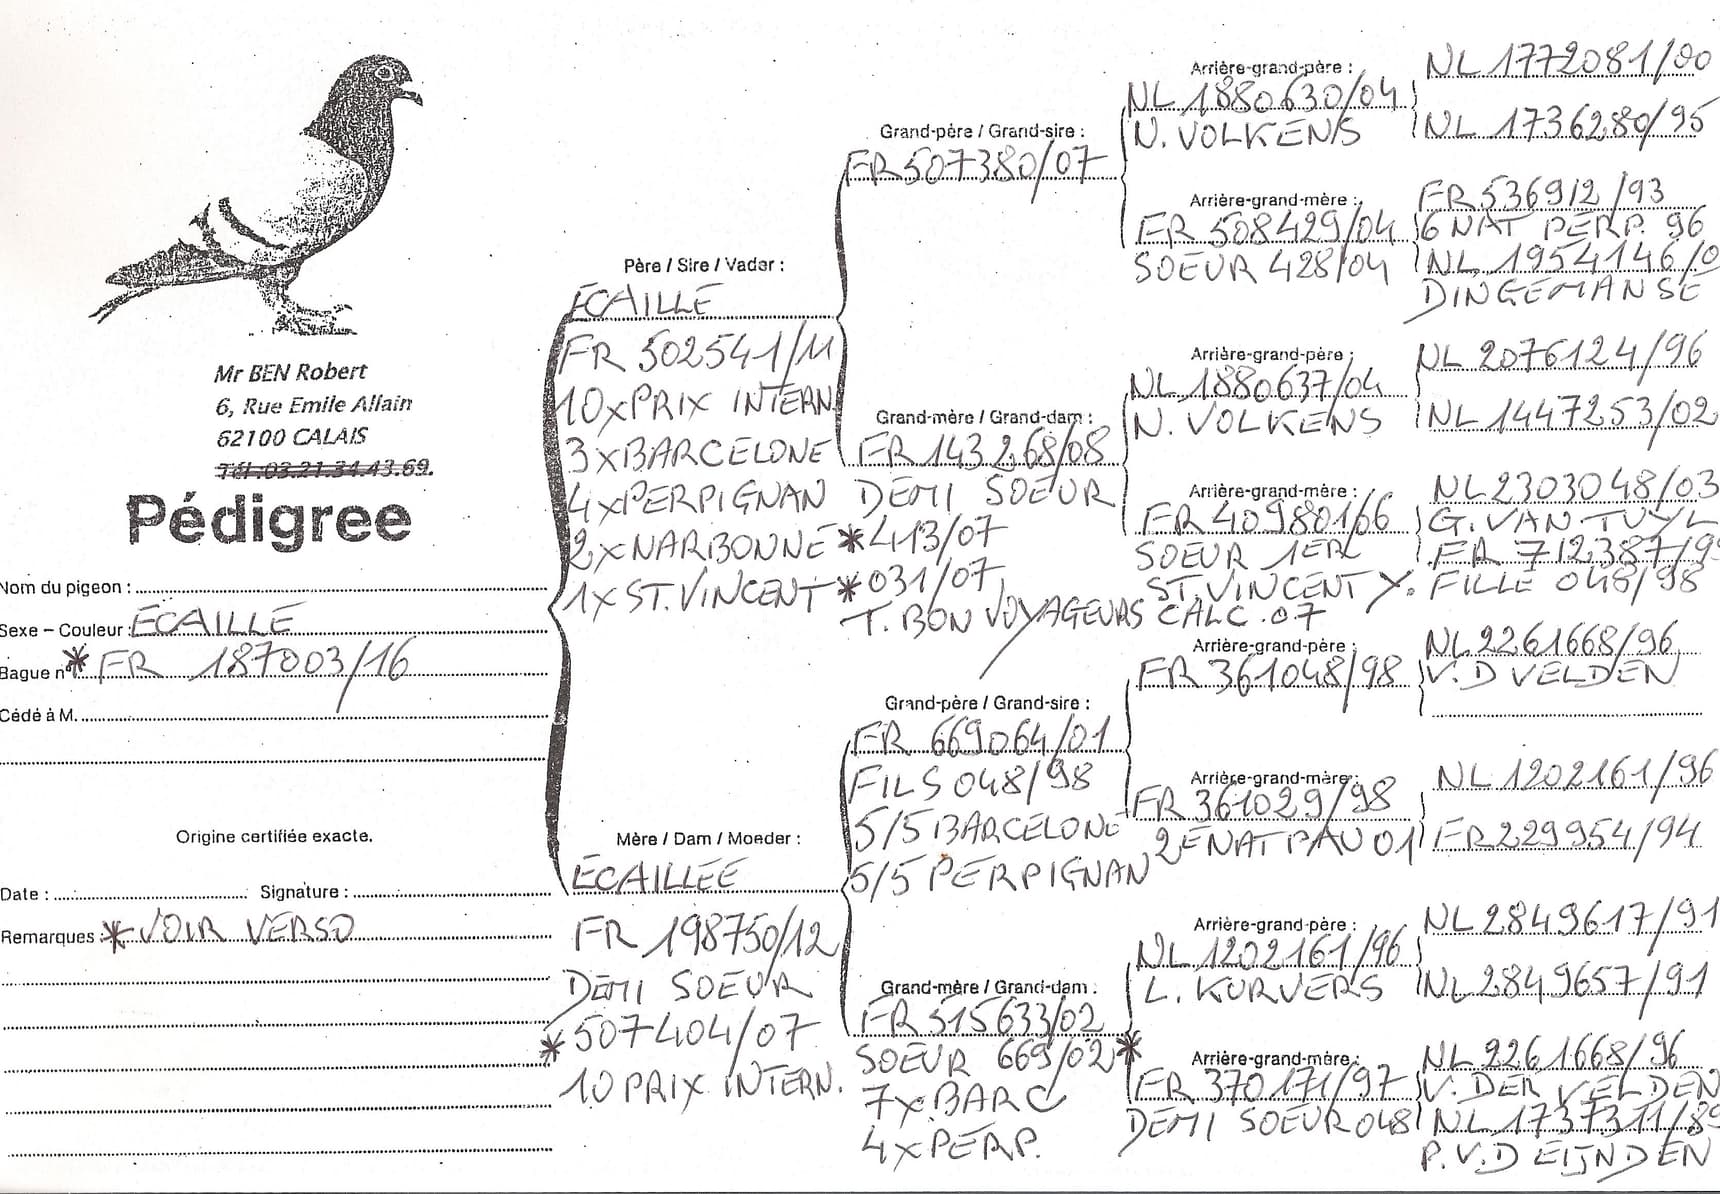 Mr BEN Robert
6, Rue Emile Allain
62100 CALAIS
Tél.03.21.34.43.69.
Pédigree
Nom du pigeon :
Sexe – Couleur : ECAILLE
Bague n° * FR 187003/16
Cédé à M.
Origine certifiée exacte.
Date : Signature :
Remarques : * VOIR VERSO
Père / Sire / Vader :
ECAILLE
FR 502541/11
10xPRIX INTERN.
3xBARCELONE
4xPERPIGNAN
2xNARBONNE
1xST.VINCENT
Mère / Dam / Moeder :
ECAILLEE
FR 198750/12
DEMI SOEUR
* 507404/07
10 PRIX INTERN.
Grand-père / Grand-sire :
FR 507380/07
Grand-mère / Grand-dam :
FR 143268/08
DEMI SOEUR
* 413/07
* 031/07
T. BON VOYAGEURS CALC. 07
Grand-père / Grand-sire :
FR 669064/01
FILS 048/98
5/5 BARCELONE
5/5 PERPIGNAN
Grand-mère / Grand-dam :
FR 515633/02
SOEUR 669/02 *
7xBARC
4xPERP.
Arrière-grand-père :
NL 1880630/04
N. VOLKENS
Arrière-grand-mère :
FR 508429/04
SOEUR 428/04
Arrière-grand-père :
NL 1880637/04
N. VOLKENS
Arrière-grand-mère :
FR 409801/66
SOEUR 1ER
ST.VINCENT Y.
Arrière-grand-père :
FR 361048/98
Arrière-grand-mère :
FR 361029/98
2E NAT PAU 01
Arrière-grand-père :
NL 1202161/96
L. KURVERS
Arrière-grand-mère :
FR 370171/97
DEMI SOEUR 048
NL 1772081/00
NL 1736280/95
FR 536912/93
6 NAT PERP. 96
NL 1954146/0
DINGEMANSE
NL 2076124/96
NL 1447253/02
NL 2303048/03
G. VAN TUYL
FR 712387/9
FILLE 048/98
NL 2261668/96
V.D VELDEN
NL 1202161/96
FR 229954/94
NL 2849617/91
NL 2849657/91
NL 2261668/96
V. DER VELDEN
NL 1737311/89
P. V.D EIJNDEN